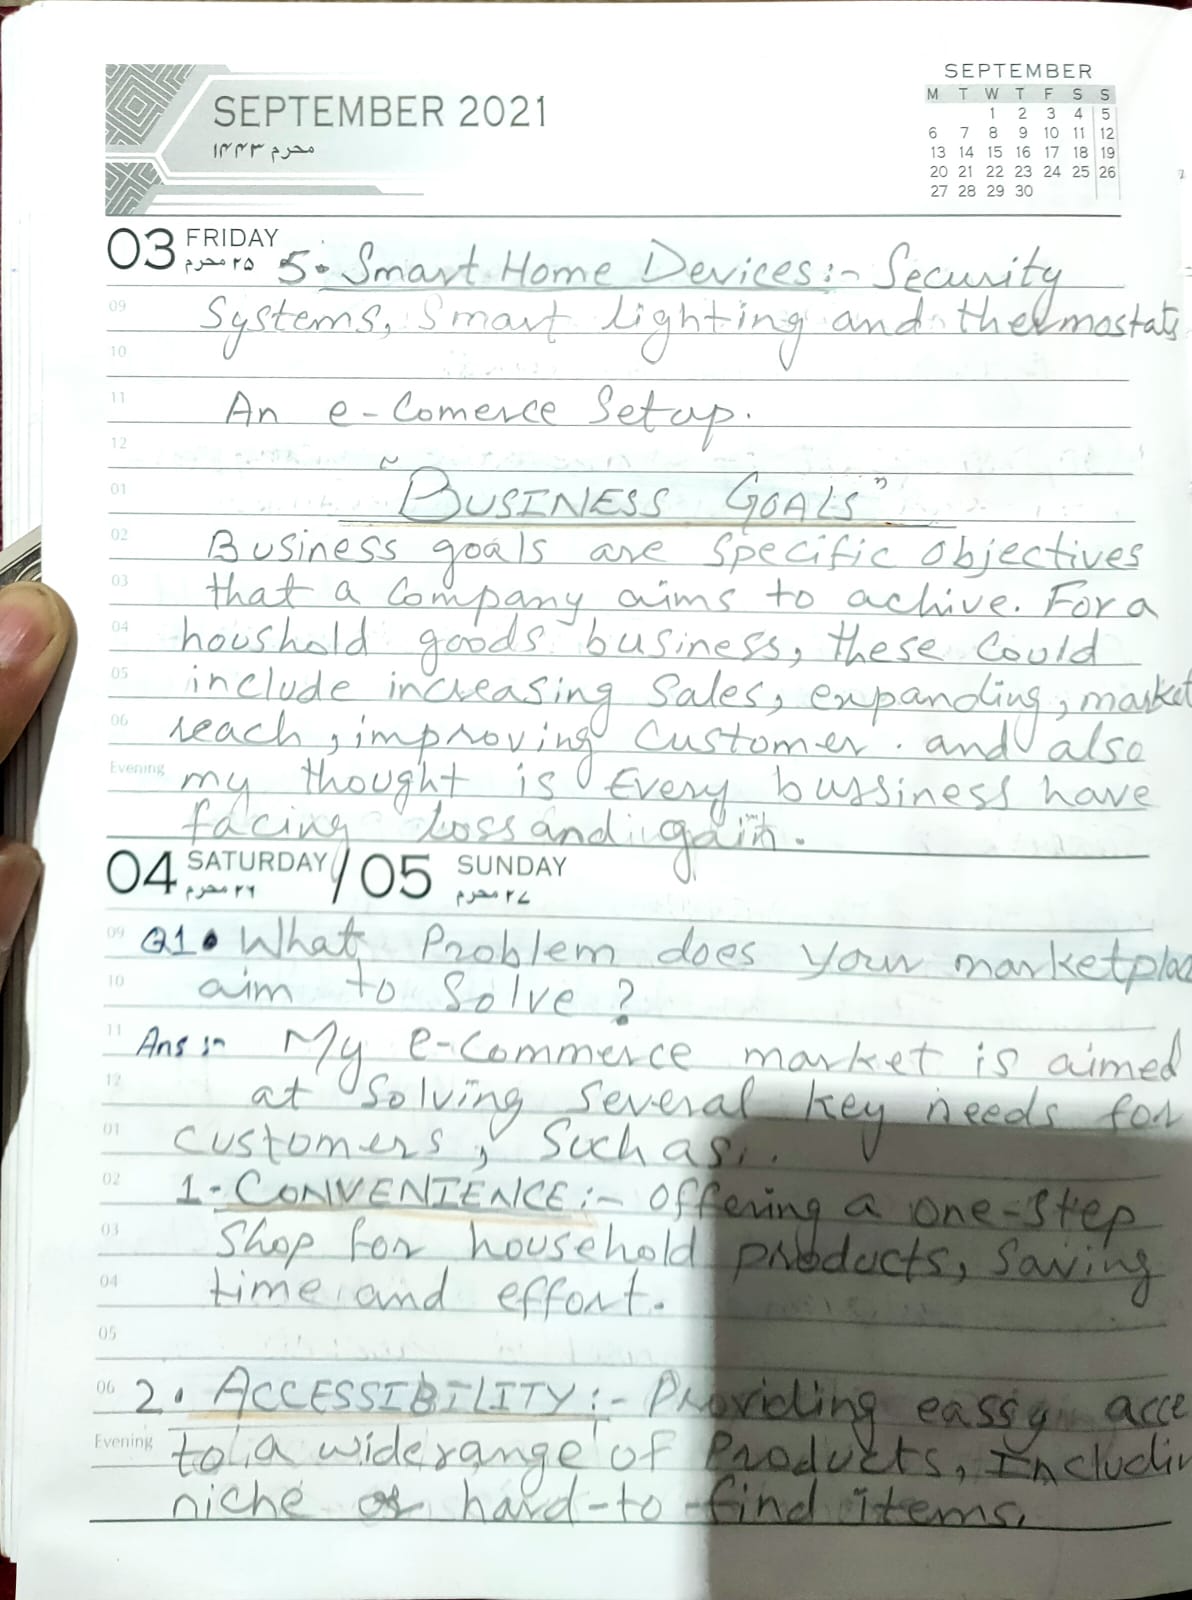 SEPTEMBER 2021
محرم ۱۴۴۳
SEPTEMBER
M T W T F S S
1 2 3 4 5
6 7 8 9 10 11 12
13 14 15 16 17 18 19
20 21 22 23 24 25 26
27 28 29 30
03 FRIDAY
۲۵ محرم
5. Smart Home Devices:- Security
09 Systems, Smart lighting and thermostats
10
11 An e-Comerce Setup.
12
01 "BUSINESS GOALS"
02 Business goals are specific objectives
03 that a company aims to achive. For a
04 houshold goods business, these could
05 include increasing sales, expanding, market
06 reach, improving customer. and also
Evening my thought is Every bussiness have
facing loss and gain.
04 SATURDAY / 05 SUNDAY
۲۶ محرم ۲۷ محرم
09 Q1. What Problem does your marketplac
10 aim to Solve?
11 Ans:- My e-Commerce market is aimed
12 at Solving several key needs for
01 customers, Such as..
02 1-CONVENIENCE:- Offering a one-step
03 Shop for household products, Saving
04 time and effort.
05
06 2. ACCESSIBILITY:- Providing eassy acce
Evening to a wide range of Products, Includin
niche or hard-to-find items.